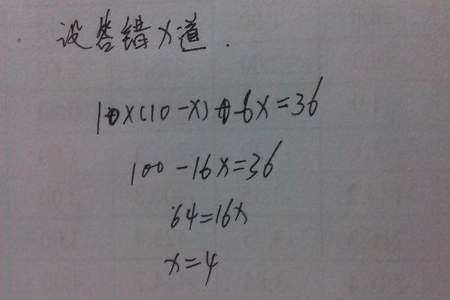 设答错x道.
10×(10-x)-6x=36
100-16x=36
64=16x
x=4